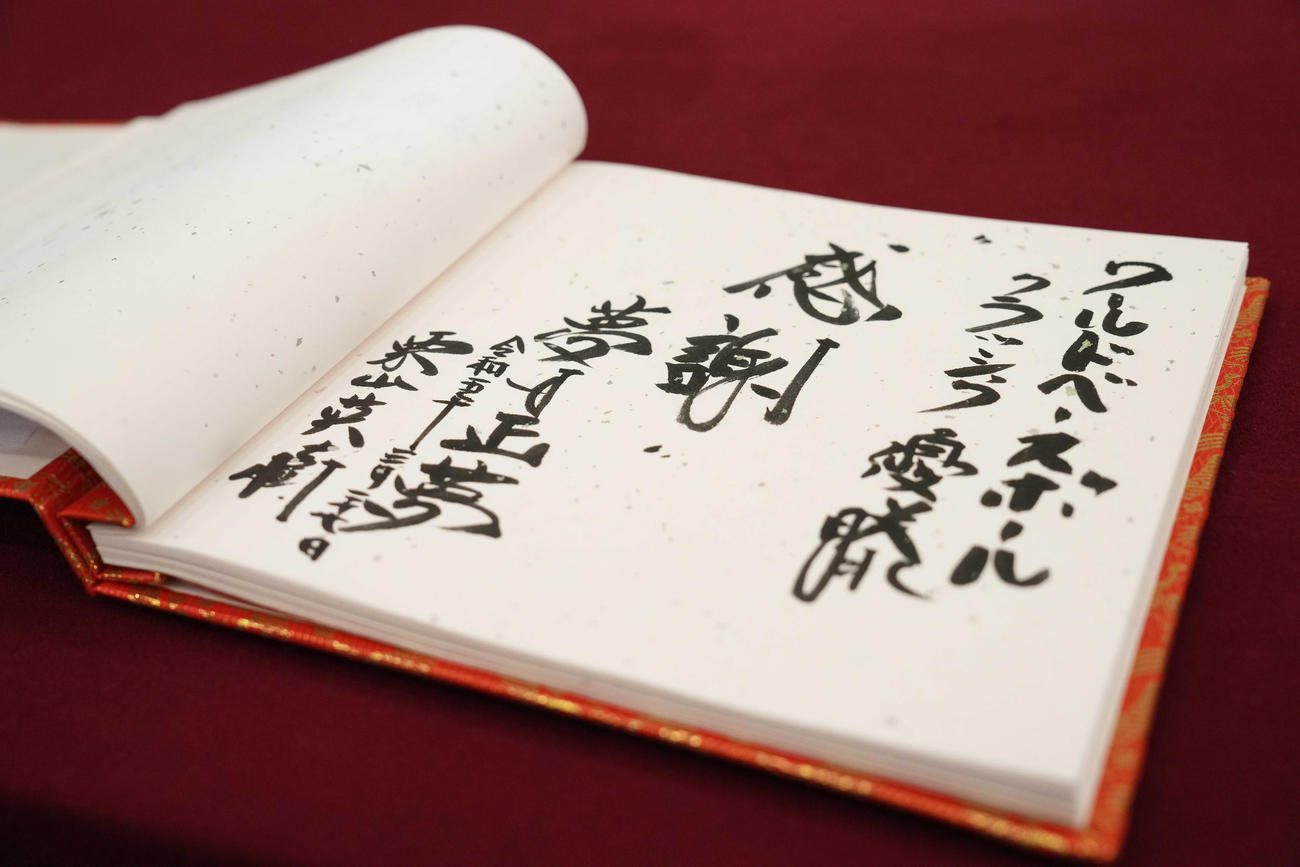 ワールドベースボール
クラシック 優勝
〝感謝〟
夢は正夢
令和五年 三月二十七日
栗山英樹